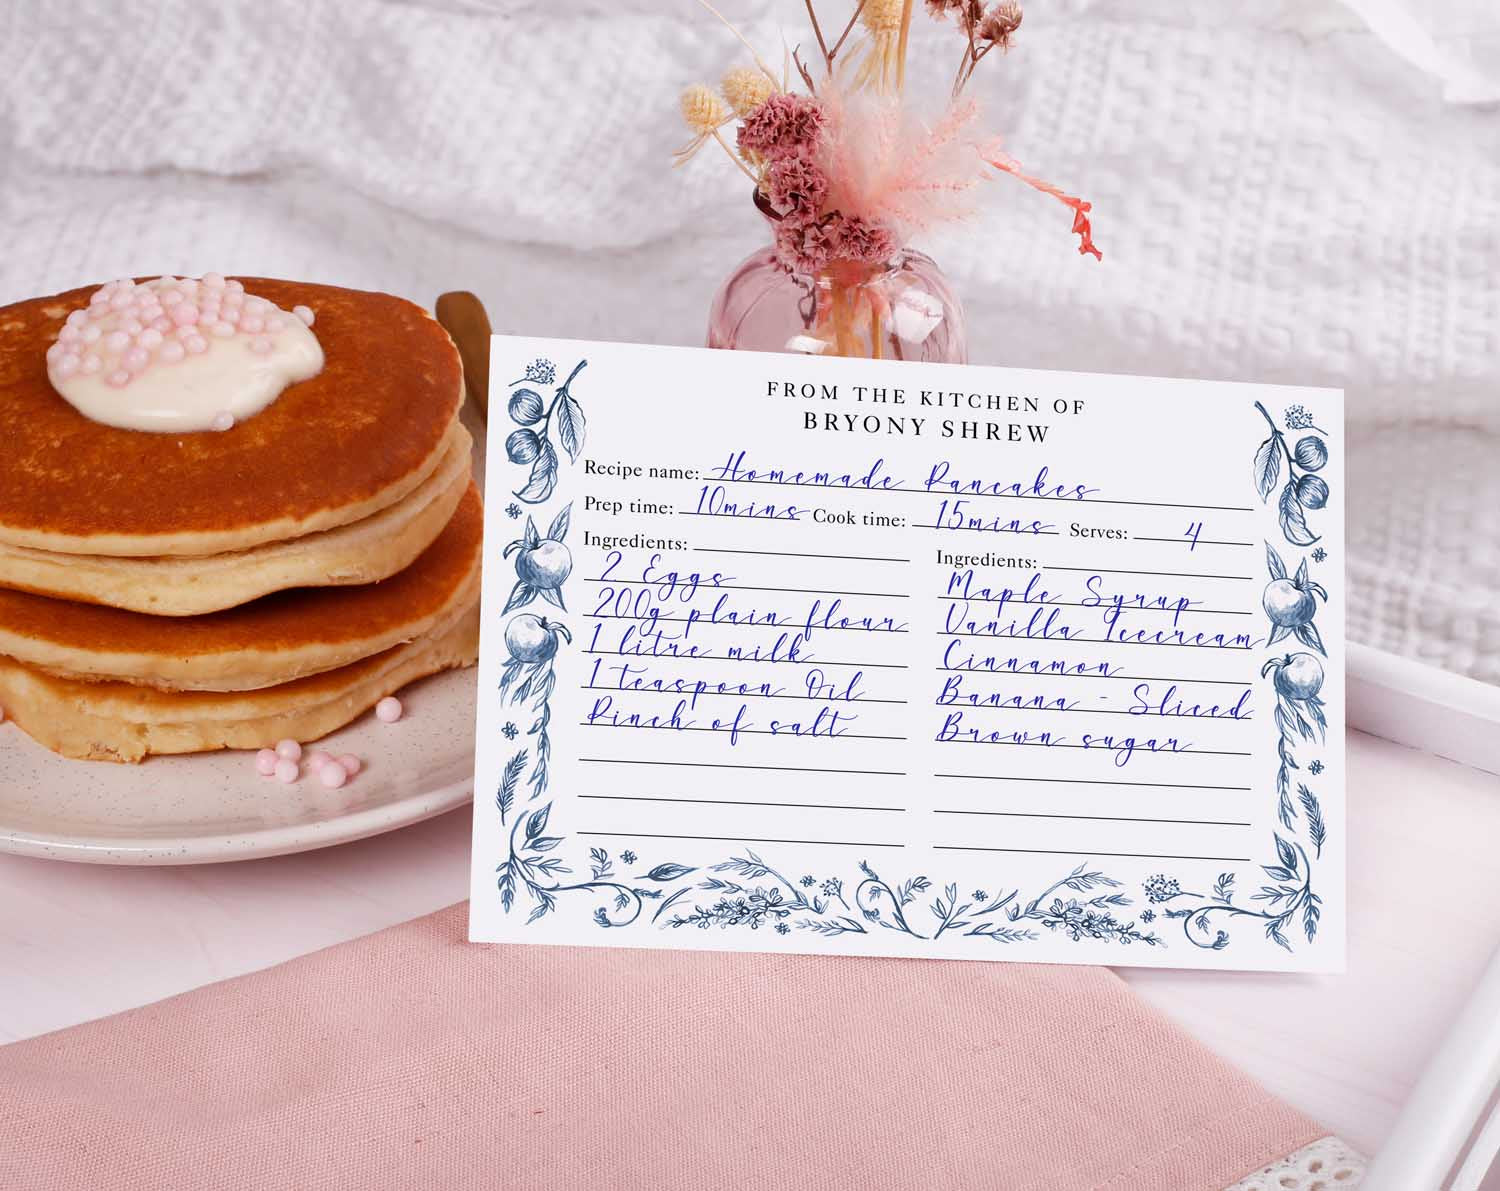 FROM THE KITCHEN OF
BRYONY SHREW
Recipe name: Homemade Pancakes
Prep time: 10mins Cook time: 15mins Serves: 4
Ingredients:
2 Eggs
200g plain flour
1 litre milk
1 teaspoon Oil
Pinch of salt
Ingredients:
Maple Syrup
Vanilla Icecream
Cinnamon
Banana - Sliced
Brown sugar